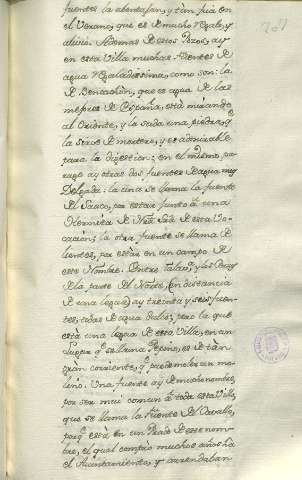 207
fuentes la abentajan, y tan fria en
el Verano, que es de mucho regalo, y
alivio. Ademas de estos Pozos, ay
en esta Villa muchas fuentes de
agua regaladissima, como son: la
de que es agua de las
mejores de España, està mirando
al Oriente, y la suda una piedra, q
la sirve de madre, y es admirable
para la digestion: en el mismo, pa
rage ay otras dos fuentes de agua muy
delgada: la una se llama la fuente
de Sauco, por estar junto à una
Hermita de Ntra Srâ de esta Vo-
cacion; la otra fuente se llama de
por estar en un campo de
este Nombre. Entre y
de la parte del Norte, (en distancia
de una legua) ay treinta y seis fuen-
tes, todas de agua dulce; pero la que
està una legua de esta Villa, en un
Lugar q se llama es de tan
gran corriente, q puede moler un mo-
lino. Una fuente ay de mucho nombre,
por ser mui comun à toda esta Villa,
que se llama la fuente del Cavallo,
porq està en un Prado de ese nom-
bre, el qual comprò muchos años ha
el Ayuntamiento, y arrendaban